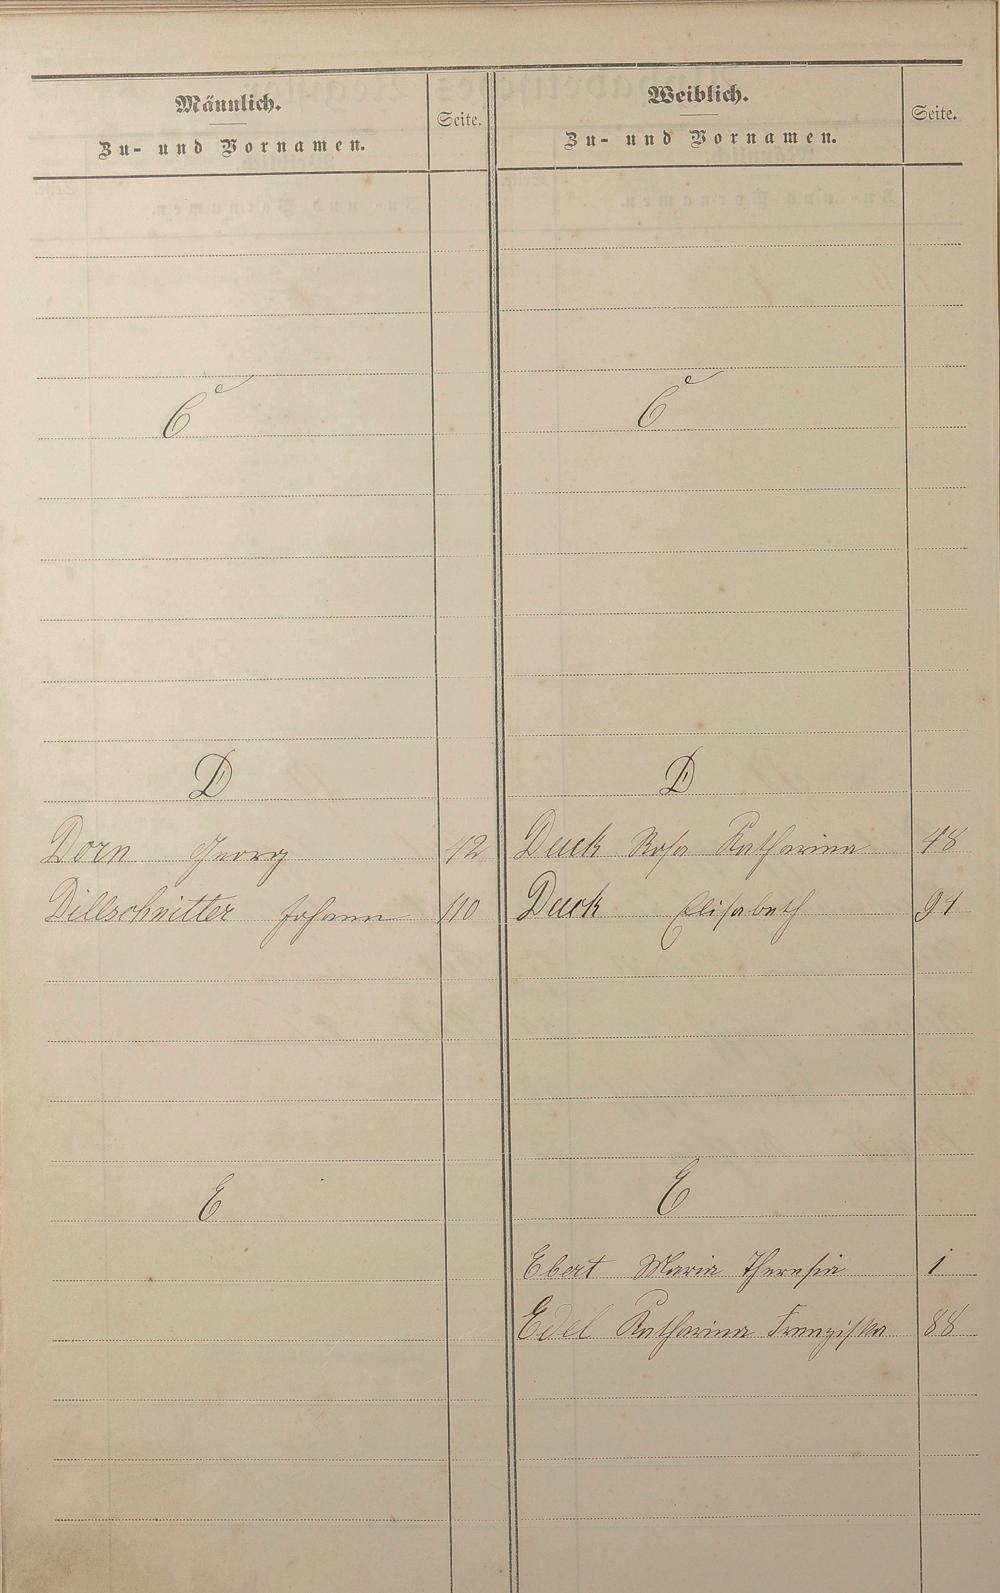 Männlich.
Zu- und Vornamen.
Seite.
Weiblich.
Zu- und Vornamen.
Seite.
C
C
D
D
Dorn Georg 42
Duck Rosa Katharina 48
Dillschnitter Johann 110
Duck Elisabeth 94
E
E
Ebert Maria Theresia 1
Edel Katharina Franziska 88